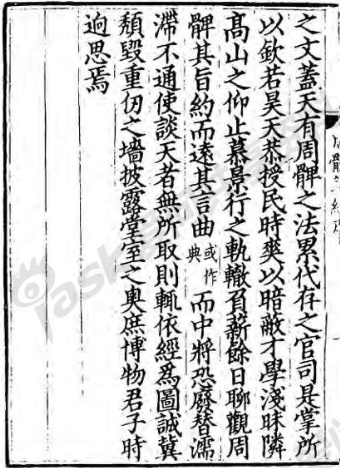 之文蓋天有周髀之法累代存之官司是掌所
以欽若昊天恭授民時爽以暗蔽才學淺昧隣
高山之仰止慕景行之軌轍負薪餘日聊觀周
髀其旨約而遠其言曲或作典而中將恐廢替濡
滯不通使談天者無所取則輒依經爲圖誠冀
頹毀重仞之墻披露堂室之奧庶博物君子時
迥思焉